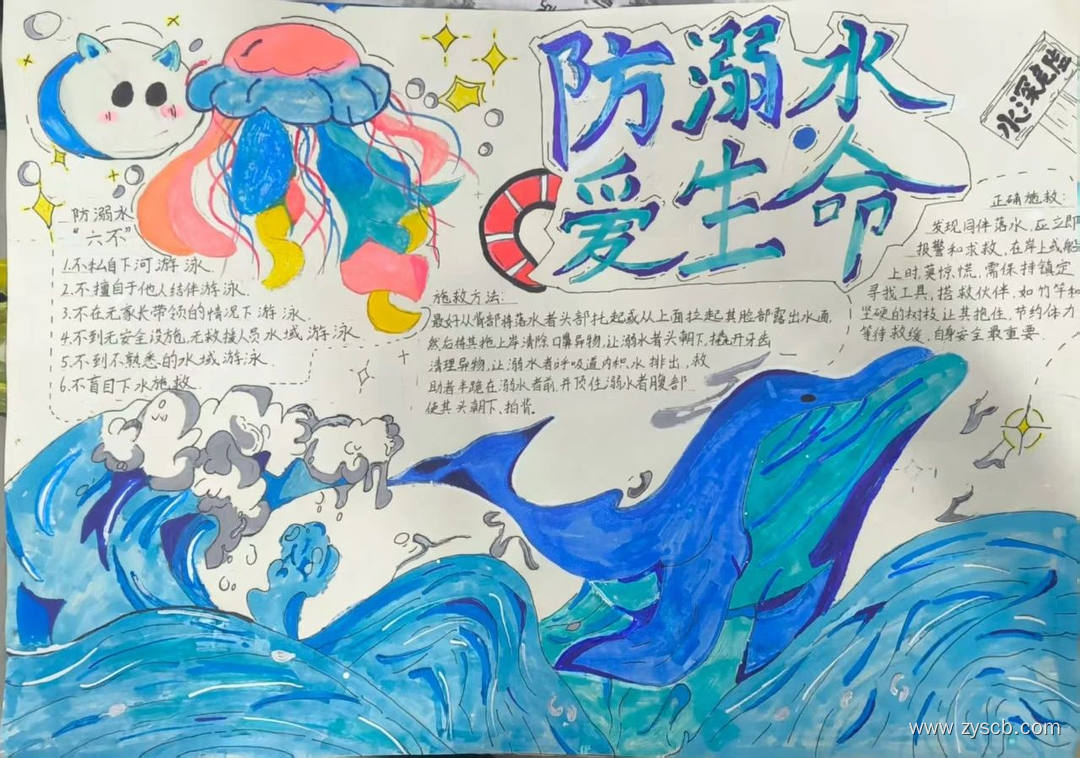 防溺水
爱生命
水深危险
防溺水
“六不”
1.不私自下河游泳.
2.不擅自于他人结伴游泳.
3.不在无家长带领的情况下游泳.
4.不到无安全设施,无救援人员水域游泳
5.不到不熟悉的水域游泳.
6.不盲目下水施救
施救方法:
最好从背部将落水者头部托起或从上面拉起其脸部露出水面
然后将其拖上岸清除口鼻异物,让溺水者头朝下,撬开牙齿
清理异物,让溺水者呼吸道内积水排出,救
助者半跪在溺水者前,并顶住溺水者腹部
使其头朝下,拍背.
正确施救:
发现同伴落水,应立即
报警和求救,在岸上或船
上时,莫惊慌,需保持镇定
寻找工具,搭救伙伴,如竹竿和
坚硬的树枝让其抱住,节约体力
等待救缓,自身安全最重要.
www.zyscb.com